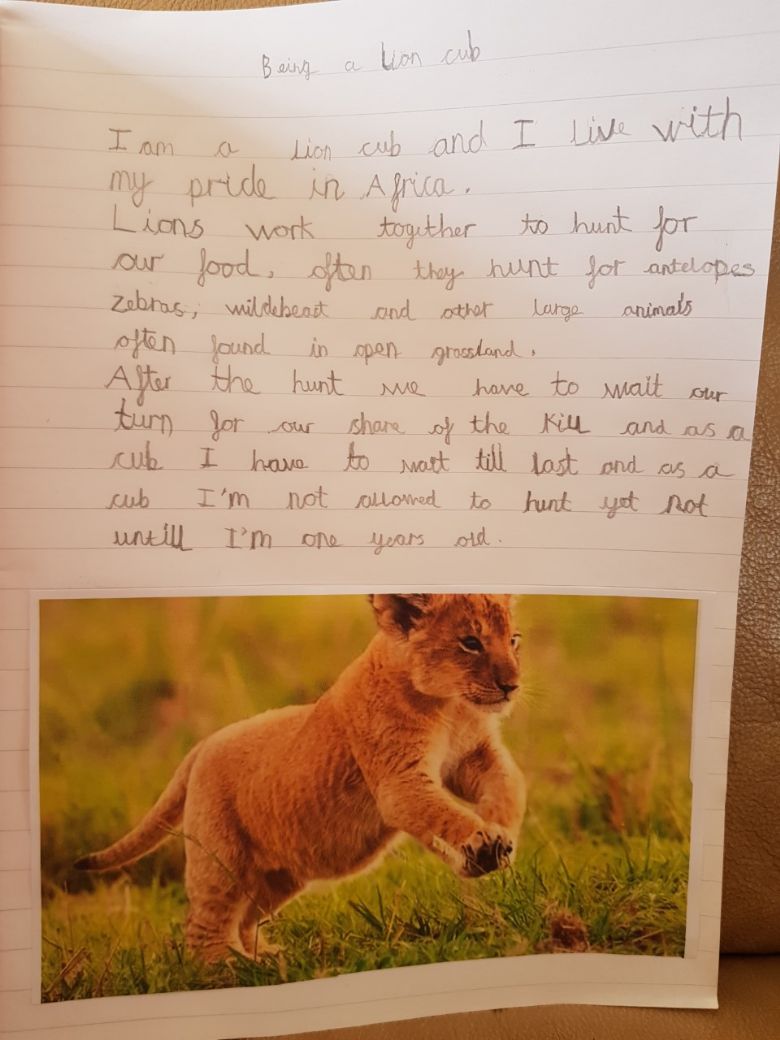 Being a Lion cub
I am a Lion cub and I Live with
my pride in Africa.
Lions work together to hunt for
our food, often they hunt for antelopes
zebras, wildebeast and other large animals
often found in open grassland.
After the hunt we have to wait our
turn for our share of the kill and as a
cub I have to wait till last and as a
cub I'm not allowed to hunt yet not
untill I'm one years old.